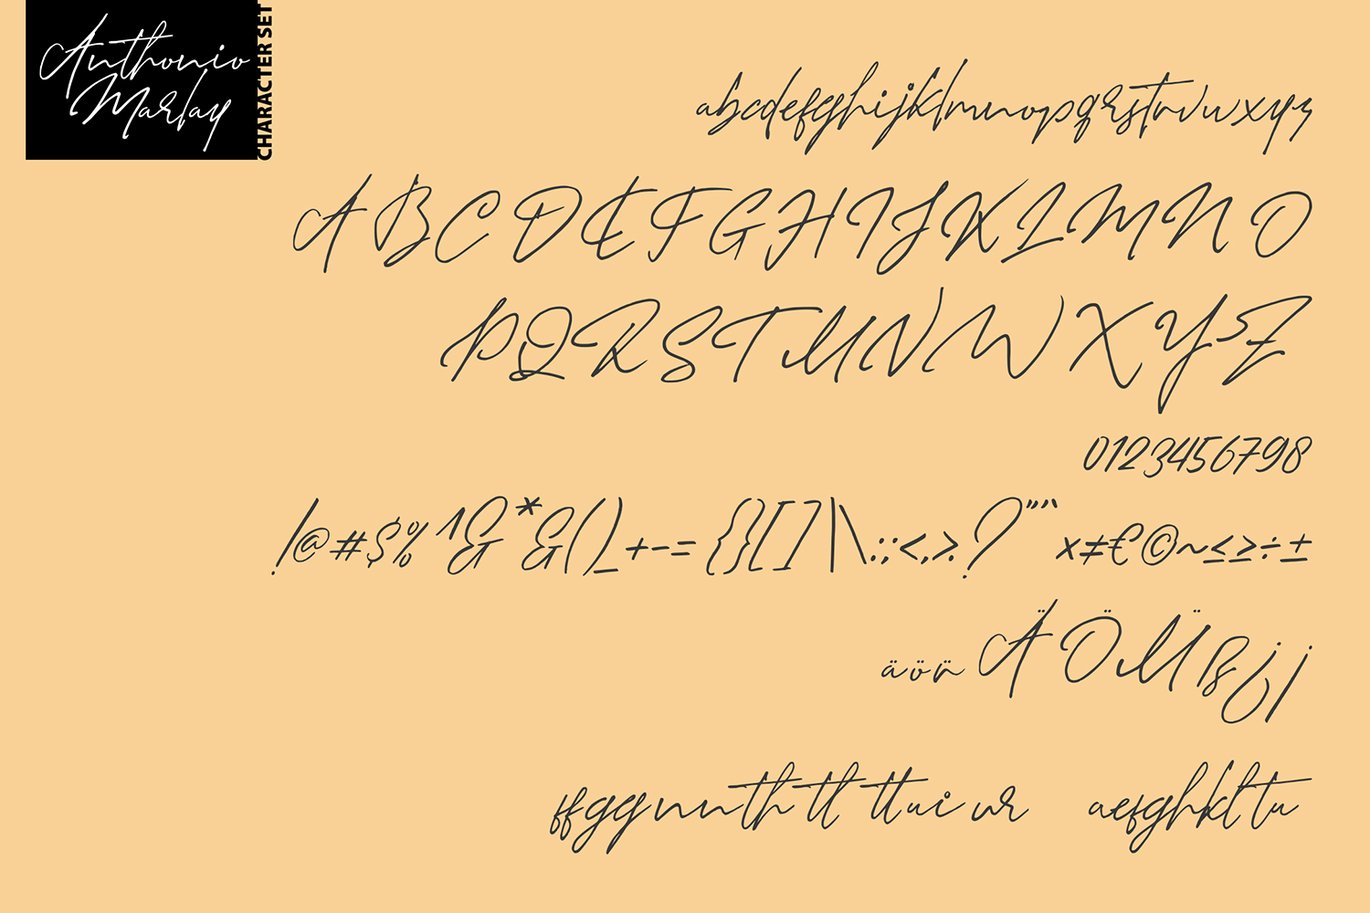 Anthonio
Marlay
CHARACTER SET
abcdefghijklmnopqrstuvwxyz
ABCDEFGHIJKLMNO
PQRSTUVWXYZ
0123456798
!@#$%^&*&()_+-={}[]|\:;<,>.?"'" ×≠€©~≤≥÷±
äöü ÄÖÜß¿¡
ffggnnthtl ttuiur aefghkltu